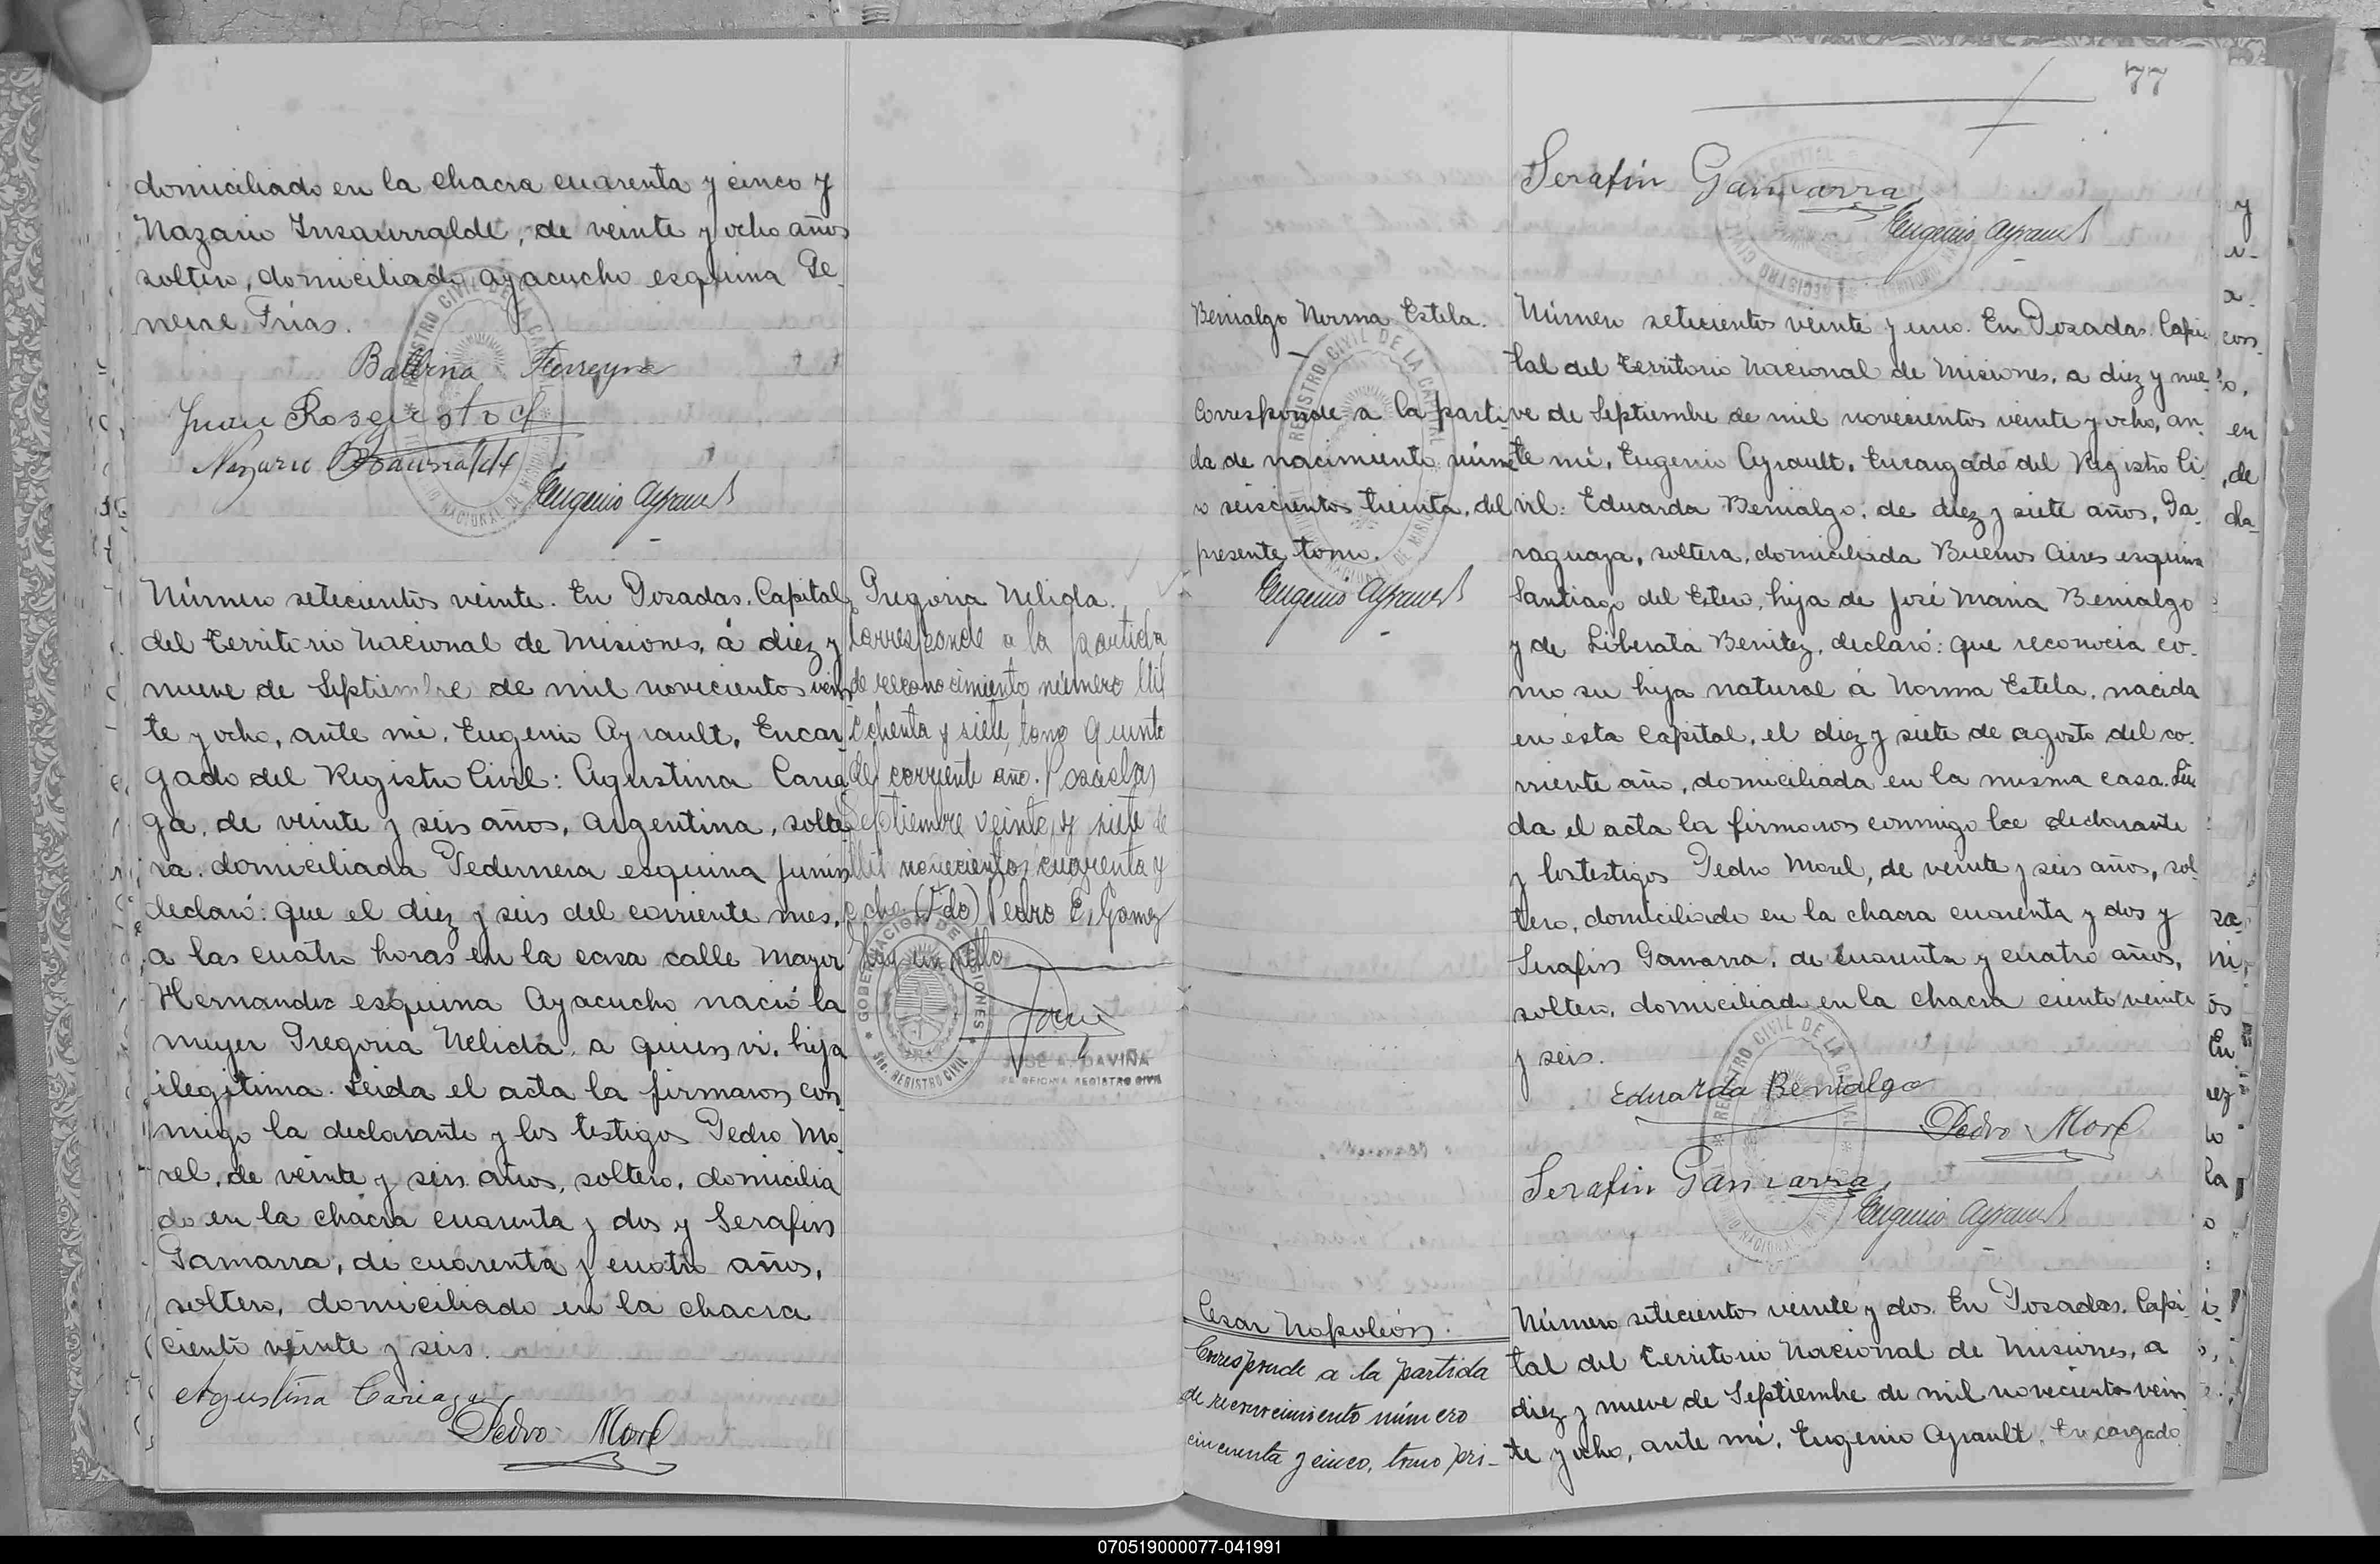 domiciliado en la chacra cuarenta y cinco y
Nazario Insaurralde, de veinte y ocho años
soltero, domiciliado Ayacucho esquina Ge_
neral Frias.
Balbina Ferreyra
Juan Rosqui
Nazario Insaurralde
Eugenio Ayrault
Número setecientos veinte. En Posadas. Capital
del Territorio Nacional de Misiones, á diez y
nueve de Septiembre de mil novecientos vein
te y ocho, ante mi, Eugenio Ayrault, Encar
gado del Registro Civil: Agustina Caria
ga, de veinte y seis años, argentina, solte
ra. domiciliada Pedernera esquina Junin
declaró: que el diez y seis del corriente mes,
a las cuatro horas en la casa calle Mayor
Hernandez esquina Ayacucho nació la
mujer Gregoria Nelida, a quien vi, hija
ilegitima. Leida el acta la firmaron con
migo la declarante y los testigos Pedro Mo
rel, de veinte y seis años, soltero, domicilia
do en la chacra cuarenta y dos y Serafin
Gamarra, de cuarenta y cuatro años,
soltero, domiciliado en la chacra
ciento veinte y seis.
Agustina Cariaga
Pedro Morel
Gregoria Nelida.
Corresponde a la partida
de reconocimiento número Mil
ochenta y siete, tomo quinto
del corriente año. Posadas
Septiembre veinte y siete de
Mil novecientos cuarenta y
ocho (Fdo) Pedro E. Gomez
Hay un sello
GOBERNACION DE MISIONES
REGISTRO CIVIL
JOSE A. GAVIÑA
OFICINA REGISTRO CIVIL
77
Serafin Gamarra
Eugenio Ayrault
Benialgo Norma Estela.
Corresponde a la parti
da de nacimiento núme
ro seiscientos treinta, del
presente tomo.
Eugenio Ayrault
Número setecientos veinte y uno. En Posadas. Capi
tal del Territorio Nacional de Misiones, a diez y nue_
ve de Septiembre de mil novecientos veinte y ocho, an_
te mi, Eugenio Ayrault, Encargado del Registro Ci
vil: Eduarda Benialgo, de diez y siete años, Pa_
raguaya, soltera, domiciliada Buenos Aires esquina
Santiago del Estero, hija de José Maria Benialgo
y de Liberata Benitez, declaró: que reconocia co_
mo su hija natural á Norma Estela, nacida
en esta Capital, el diez y siete de agosto del co_
rriente año, domiciliada en la misma casa. Lei
da el acta la firmaron conmigo la declarante
y los testigos Pedro Morel, de veinte y seis años, sol
tero, domiciliado en la chacra cuarenta y dos y
Serafin Gamarra, de cuarenta y cuatro años,
soltero, domiciliado en la chacra ciento veinte
y seis.
Eduarda Benialgo
Pedro Morel
Serafin Gamarra
Eugenio Ayrault
Cesar Napoleón.
Corresponde a la partida
de reconocimiento número
cincuenta y cinco, tomo pri_
Número setecientos veinte y dos. En Posadas. Capi_
tal del Territorio Nacional de Misiones, a
diez y nueve de Septiembre de mil novecientos vein
te y ocho, ante mi, Eugenio Ayrault, Encargado
070519000077-041991